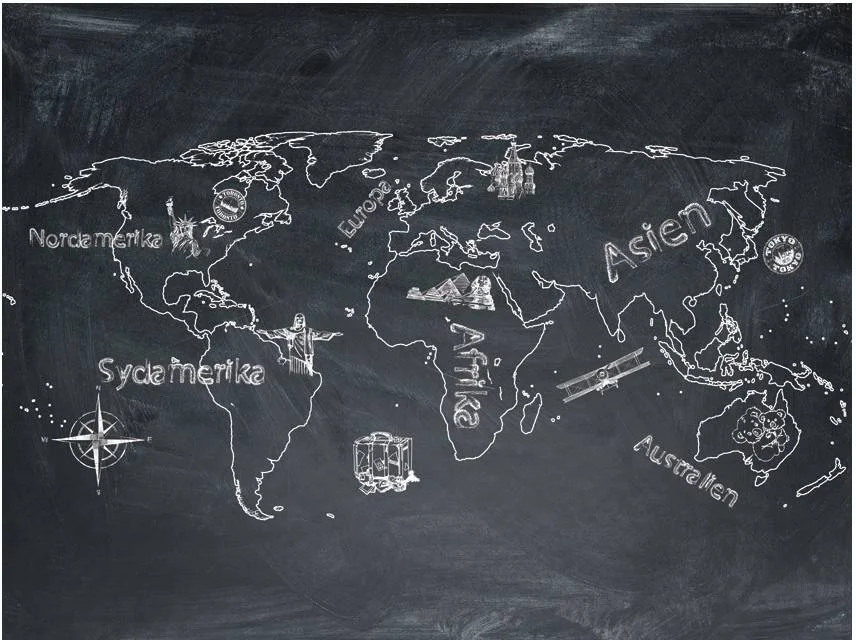 Nordamerika
TORONTO
TORONTO
Europa
Asien
TOKYO
TOKYO
Afrika
Sydamerika
Australien
N
W
E
S